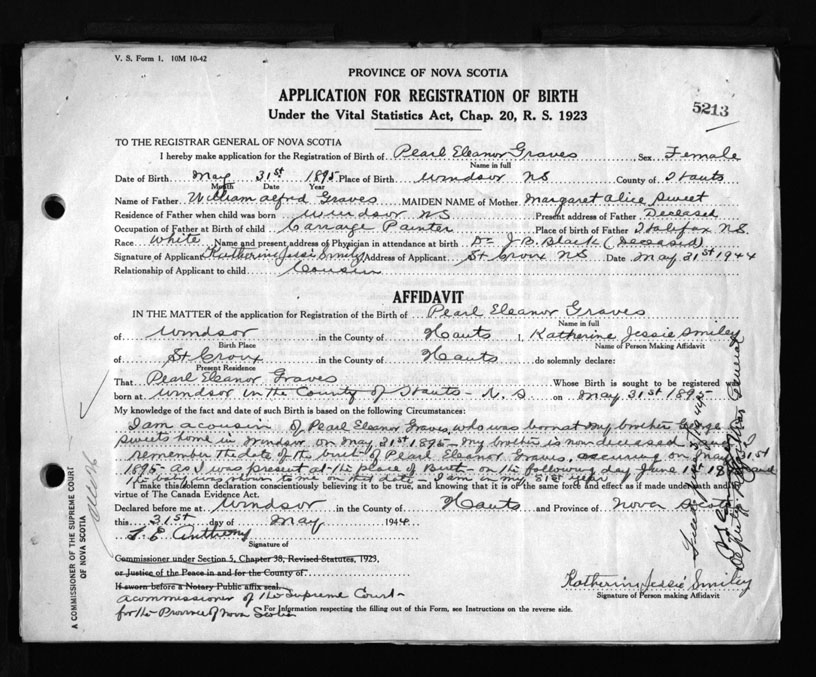 V. S. Form 1. 10M 10-42
PROVINCE OF NOVA SCOTIA
APPLICATION FOR REGISTRATION OF BIRTH
5213
Under the Vital Statistics Act, Chap. 20, R. S. 1923
TO THE REGISTRAR GENERAL OF NOVA SCOTIA
I hereby make application for the Registration of Birth of Pearl Eleanor Graves, Sex Female
Name in full
Date of Birth May 31st 1895 Place of Birth Windsor NS County of Hants
Month Date Year
Name of Father William Alfred Graves MAIDEN NAME of Mother Margaret Alice Sweet
Residence of Father when child was born Windsor NS Present address of Father Deceased
Occupation of Father at Birth of child Carraige Painter Place of birth of Father Halifax N.S.
Race White Name and present address of Physician in attendance at birth Dr J.B. Black (Deceased)
Signature of Applicant Katherine Jessie Smiley Address of Applicant St Croix NS Date May 31st 1944
Relationship of Applicant to child Cousin
AFFIDAVIT
IN THE MATTER of the application for Registration of the Birth of Pearl Eleanor Graves
Name in full
of Windsor in the County of Hants I, Katherine Jessie Smiley
Birth Place Name of Person Making Affidavit
of St Croix in the County of Hants do solemnly declare:
Present Residence
That Pearl Eleanor Graves Whose Birth is sought to be registered was
born at Windsor in the County of Hants - N.S on May 31st 1895
My knowledge of the fact and date of such Birth is based on the following Circumstances:
I am a cousin of Pearl Eleanor Graves, who was born at my brother George
Sweets home in Windsor on May 31st 1895 - My brother is now deceased I can
remember the date of the birth of Pearl Eleanor Graves, occuring on May 31st
1895 - as I was present at the place of Birth - on the following day June 1st 1895 and
the baby was shown to me on that date - I am in my 81st year
make this solemn declaration conscientiously believing it to be true, and knowing that it is of the same force and effect as if made under oath and by
virtue of The Canada Evidence Act.
Declared before me at Windsor in the County of Hants and Province of Nova Scotia
this 31st day of May 1944
Anthony
Signature of
Commissioner under Section 5, Chapter 38, Revised Statutes, 1923,
or Justice of the Peace in and for the County of
If sworn before a Notary Public affix seal.
a commissioner of the Supreme Court
for the Province of Nova Scotia
Katherine Jessie Smiley
Signature of Person making Affidavit
For Information respecting the filling out of this Form, see Instructions on the reverse side.
A COMMISSIONER OF THE SUPREME COURT
OF NOVA SCOTIA
Deputy Registrar General